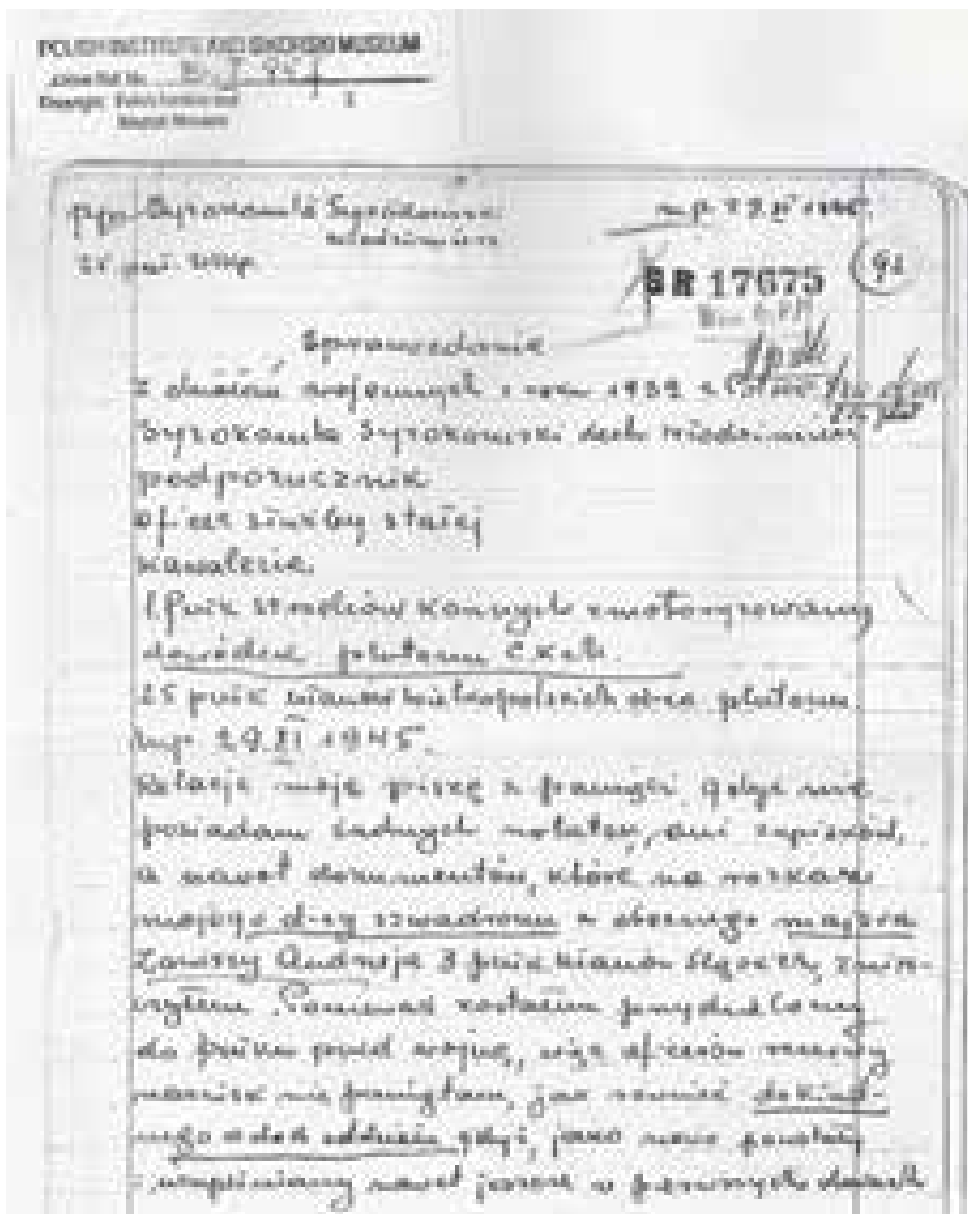 POLISH INSTITUTE AND SIKORSKI MUSEUM
ppor. Syrokomla Syrokomski
Włodzimierz
m.p. 29.XI 1945.
25. puł.
92
BR 17675
Sprawozdanie
z działań wojennych z roku 1939 w Polsce
Syrokomla Syrokomski Lech Włodzimierz
podporucznik
oficer służby stałej
kawalerii.
1 pułk strzelców konnych zmotoryzowany
dowódca plutonu C.K.M.
25 pułk ułanów wielkopolskich d-ca plutonu
mp. 29.XI 1945.
Relację moją piszę z pamięci gdyż nie
posiadam żadnych notatek, ani zapisków,
a nawet dokumentów, które na rozkaz
mojego d-cy szwadronu a obecnego majora
Zawiszy Andrzeja 3 pułk ułanów Śląskich, znisz-
czyłem. Ponieważ zostałem przydzielony
do pułku przed wojną, więc oficerów rezerwy
nazwisk nie pamiętam, jak również dokład-
nego gdyż, jako nowo powstały
i uzupełniany nawet jeszcze w pierwszych dniach